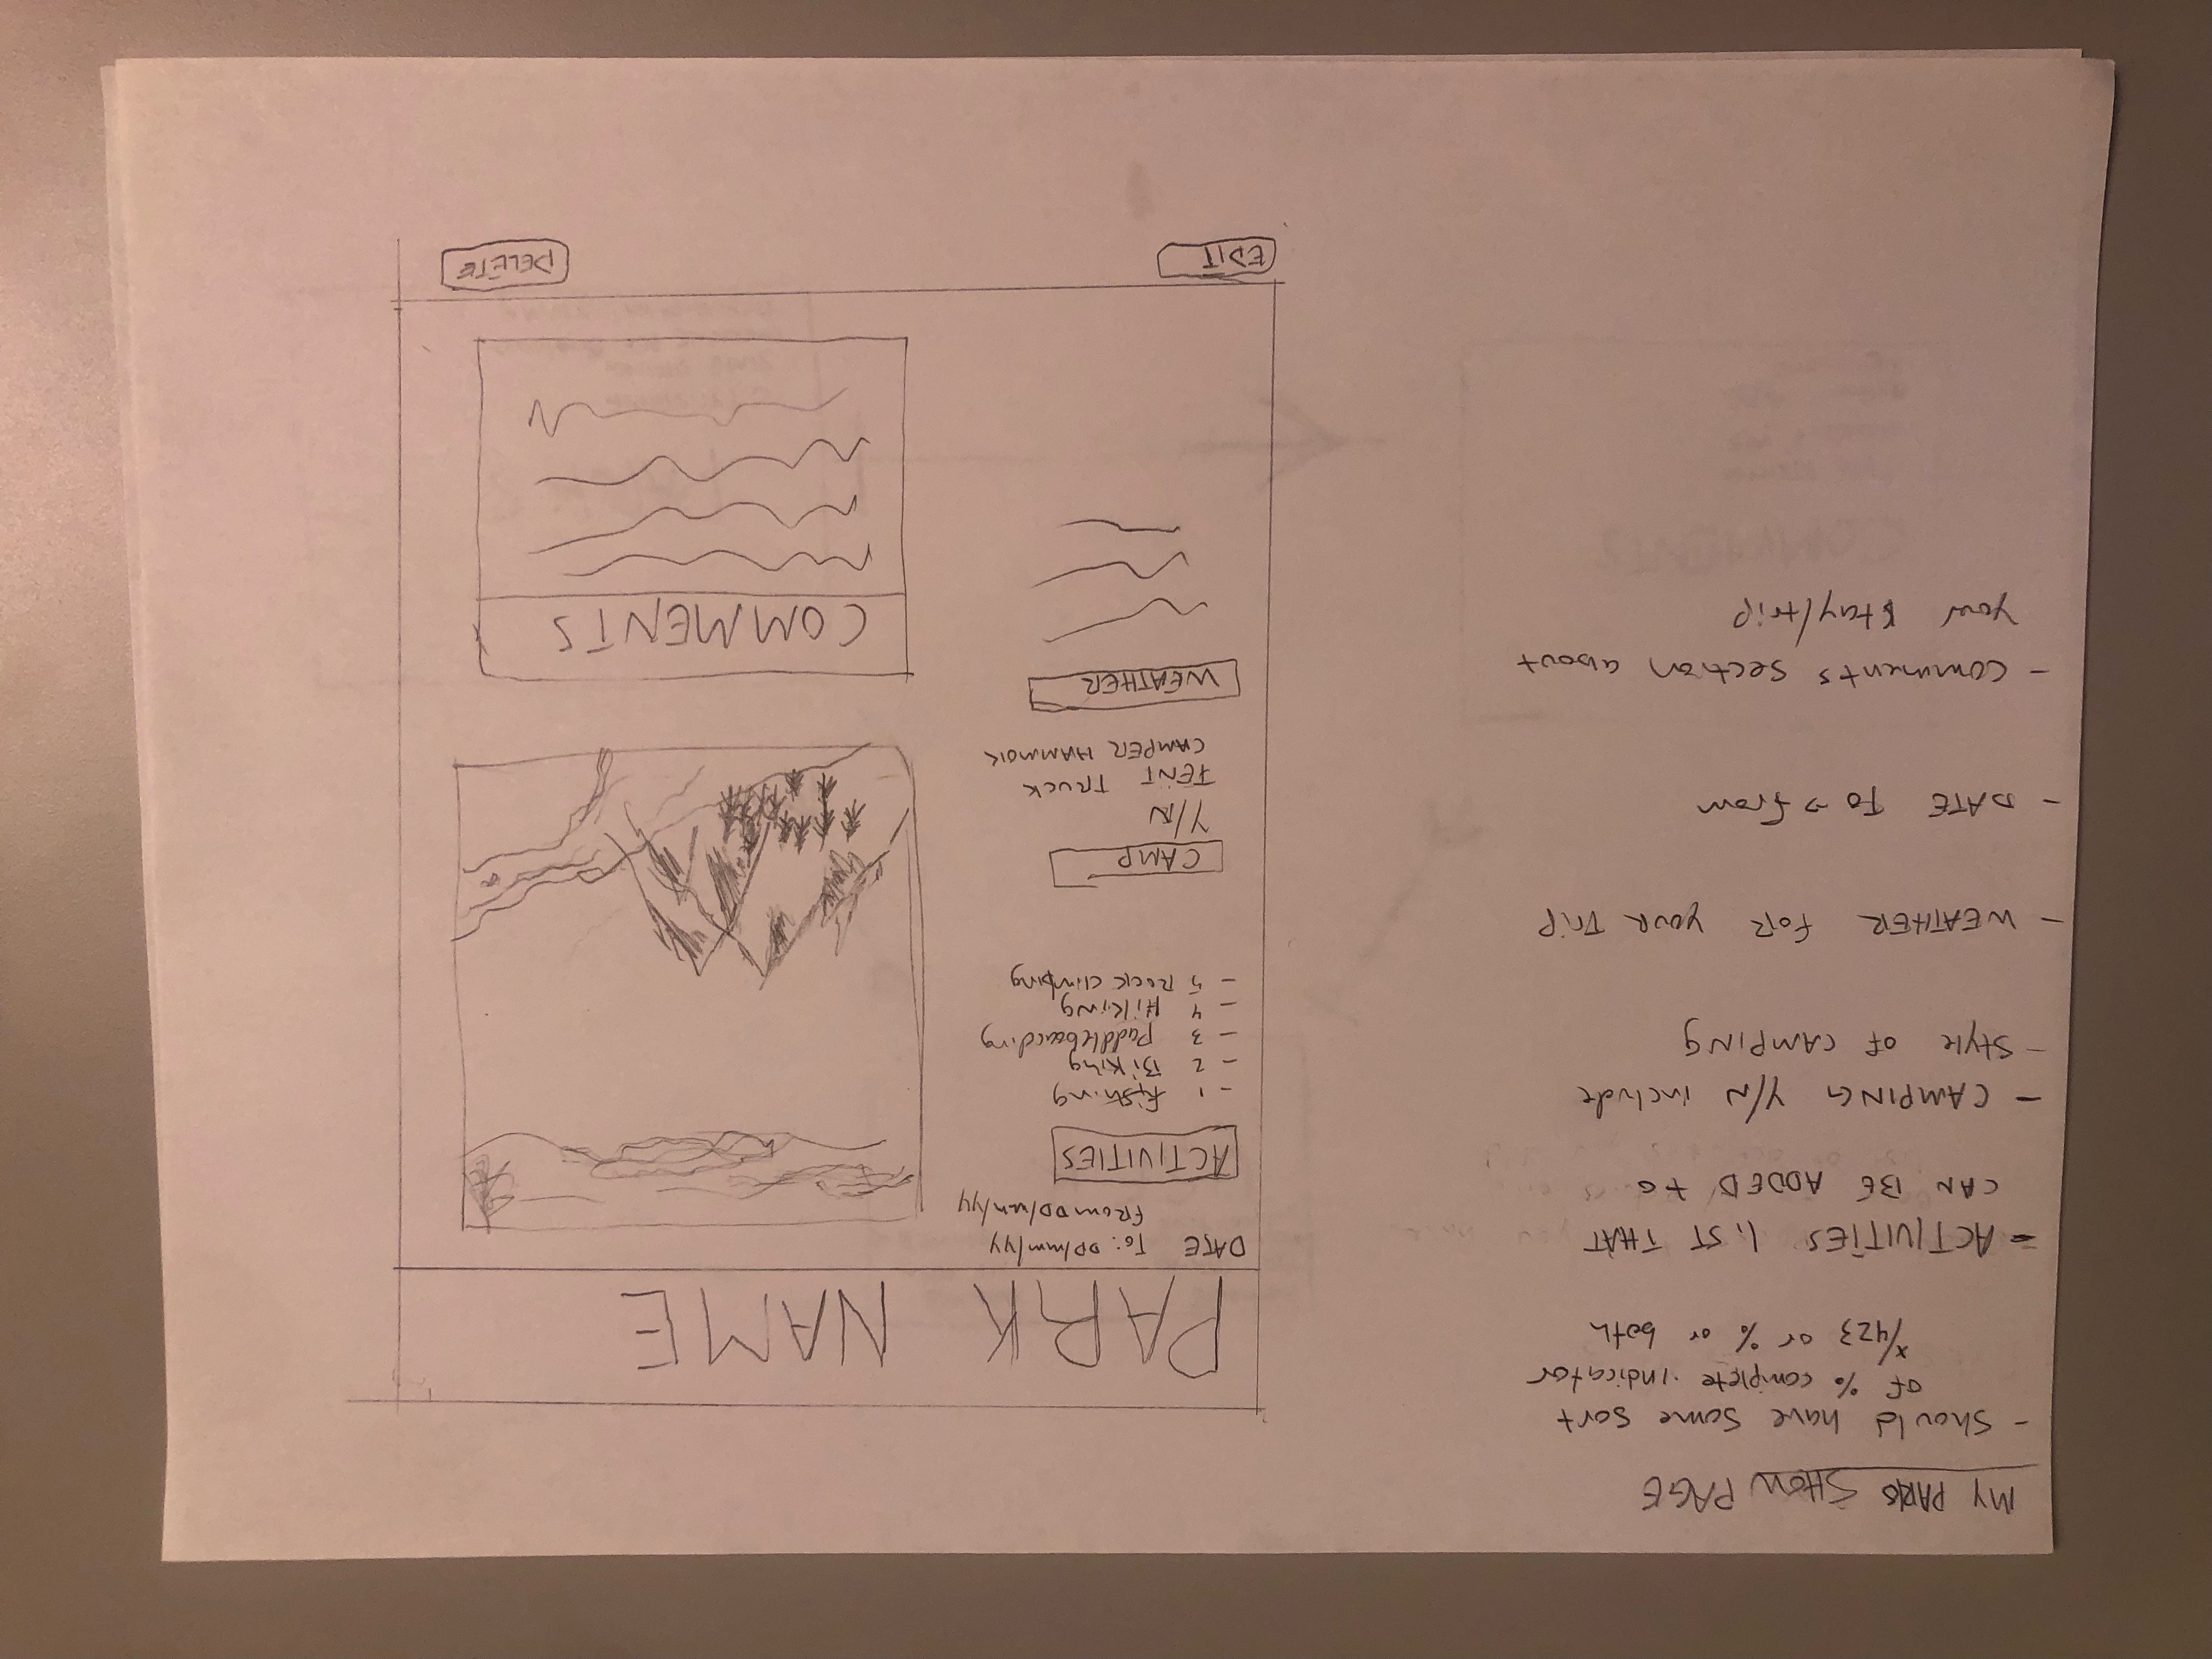 MY PARKS SHOW PAGE
- Should have some sort
of % complete indicator
x/423 or % or both
- ACTIVITIES LIST THAT
CAN BE ADDED to
- CAMPING Y/N include
- Style of CAMPING
- WEATHER FOR YOUR TRIP
- DATE TO → from
- Comments section about
your stay/trip
PARK NAME
DATE To: DD/mm/yy
FROM DD/mm/yy
ACTIVITIES
- 1 fishing
- 2 Biking
- 3 Paddleboarding
- 4 Hiking
- 5 Rock climbing
CAMP
Y/N
TENT TRUCK
CAMPER HAMMOK
WEATHER
COMMENTS
EDIT
DELETE